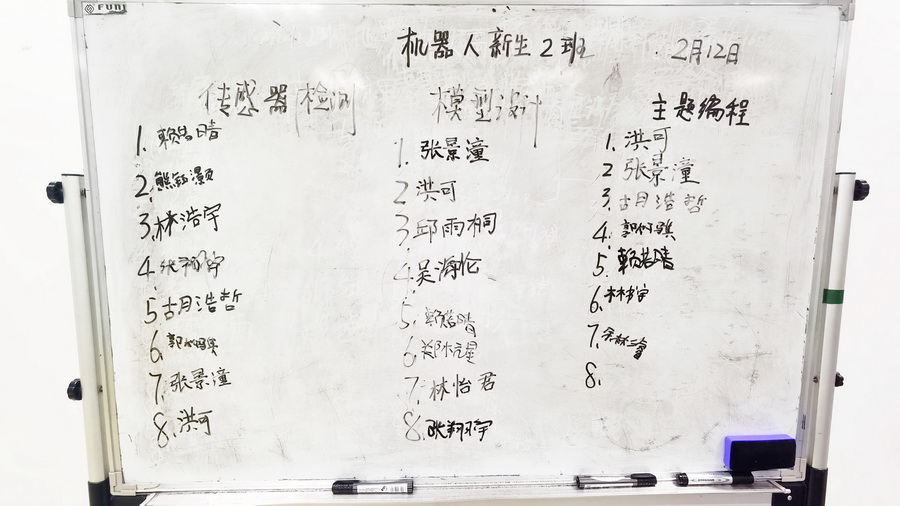 FUNI
机器人新生2班 2月12日
传感器检测
1. 赖若晴
2.
3. 林浩宇
4. 张翔宇
5 胡浩哲
6.
7. 张景潼
8. 洪可
模型设计
1. 张景潼
2 洪可
3 邱雨桐
4 吴海伦
5. 赖若晴
6.
7. 林怡君
8. 张翔宇
主题编程
1. 洪可
2 张景潼
3. 胡浩哲
4.
5. 赖若晴
6.
7.
8.